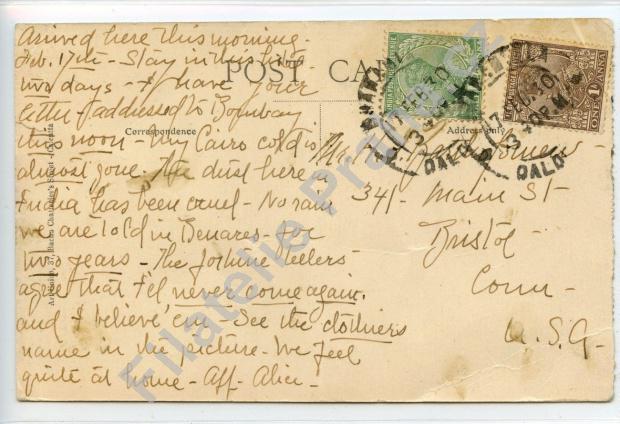 Arrived here this morning -
Feb. 17th - Stay in this hotel
two days - I have your
letter addressed to Bombay
this noon - My Cairo cold is
almost gone. The dust here in
India has been cruel - No rain
we are told in Benares - for
two years - The fortune tellers
agree that I'll never come again.
and I believe 'em - See the clothiers
name in the picture - We feel
quite at home - Aff. Alice -
POST CA
Correspondence
Address only
341 - Main St -
Bristol
Conn -
U.S.A -
ONE ANNA
17 FEB. 30